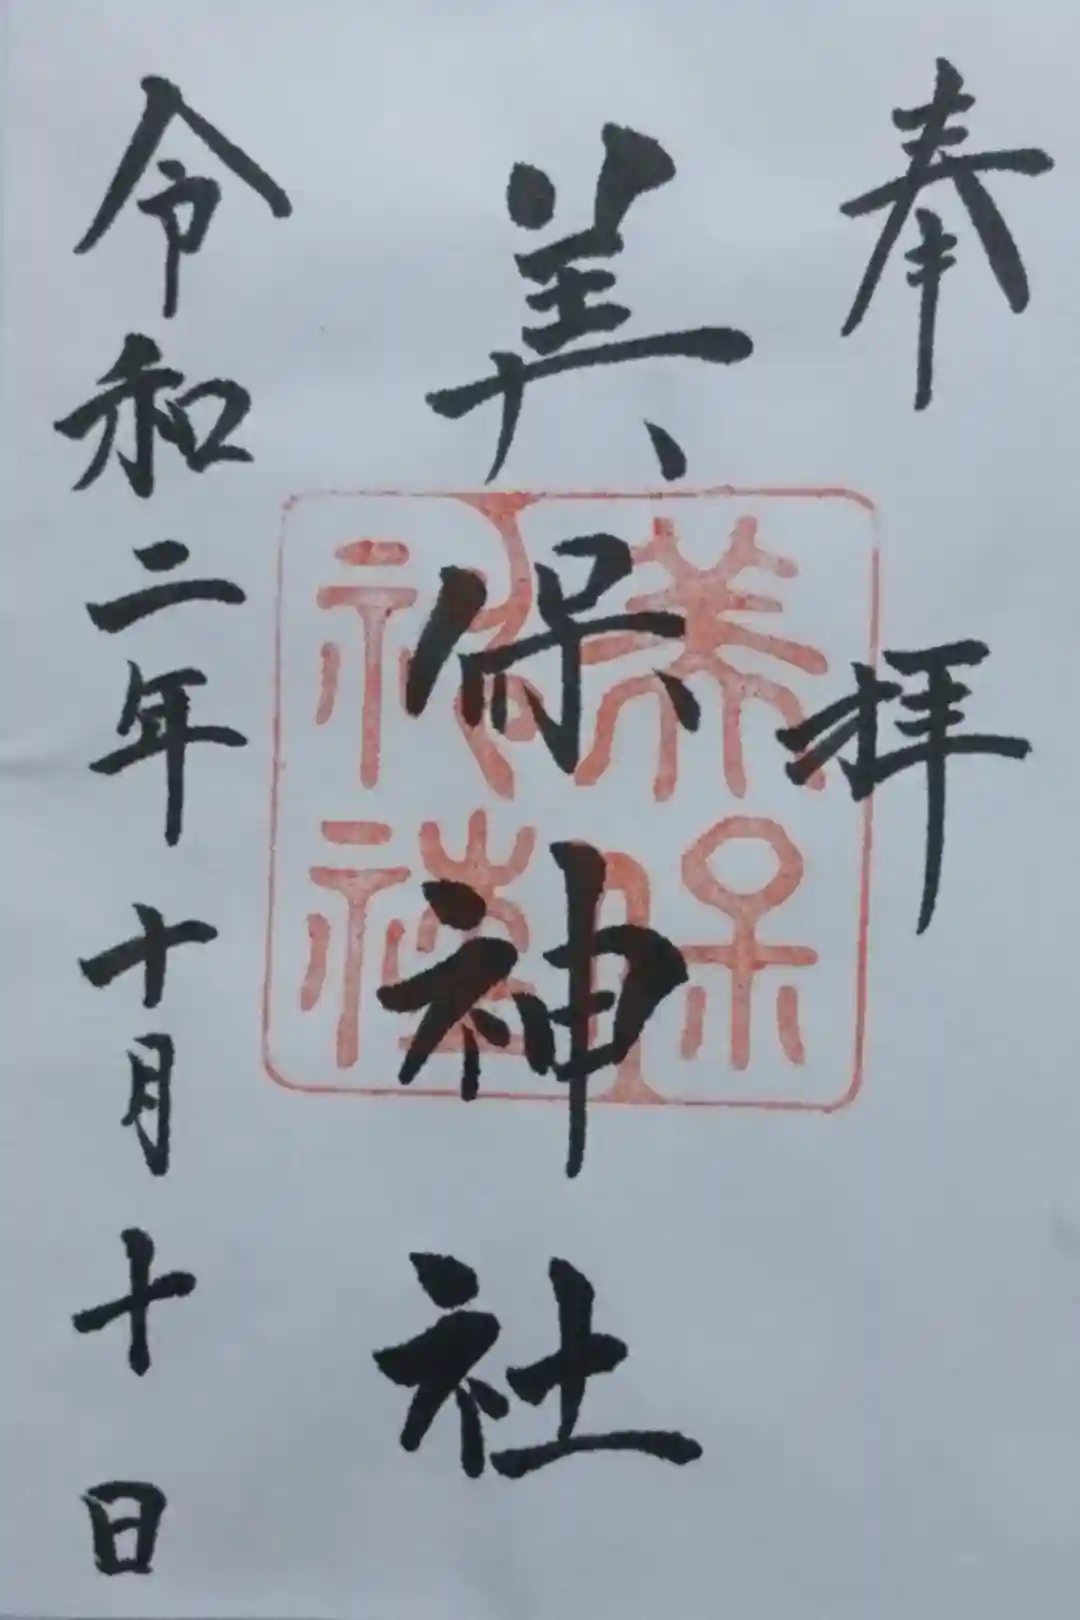 奉拝
美保神社
美保
神社
令和二年十月十日